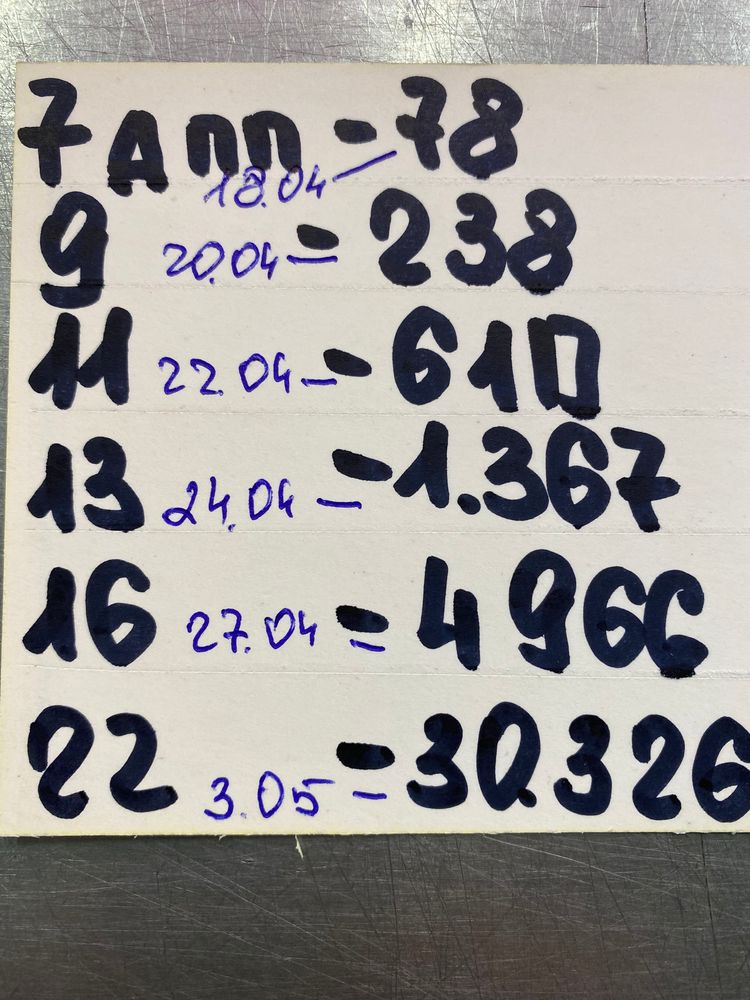 7 дпп - 78
18.04 -
9 20.04 - 238
11 22.04 - 610
13 24.04 - 1.367
16 27.04 - 4966
22 3.05 - 30.326